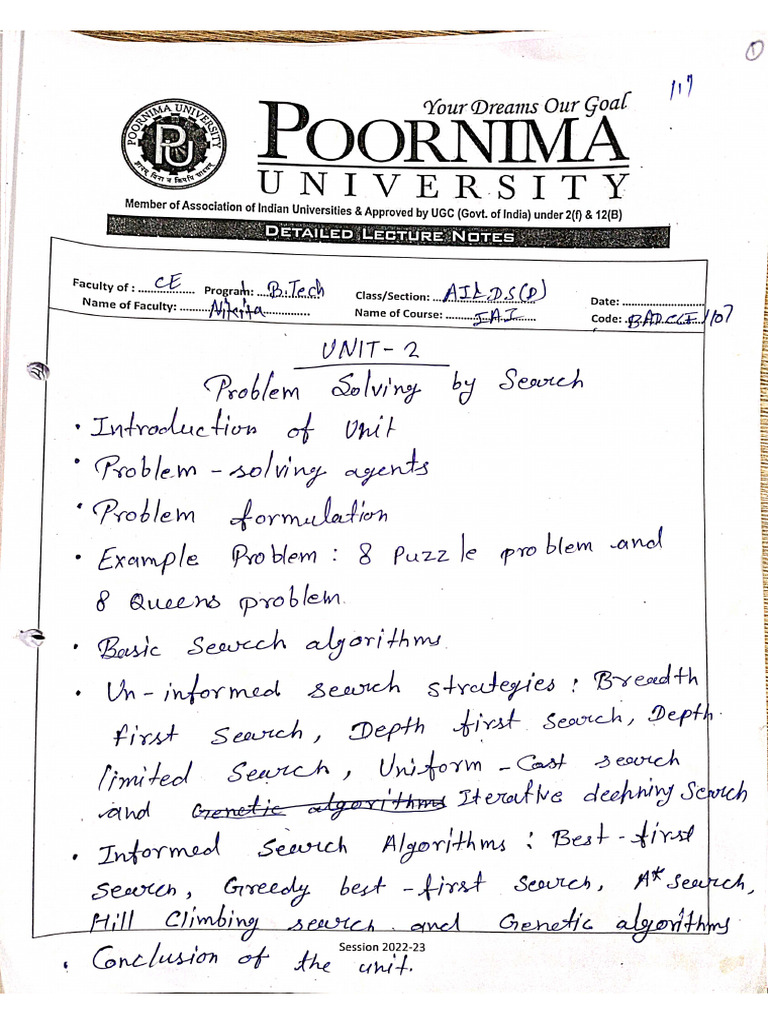 1
117
Your Dreams Our Goal
POORNIMA UNIVERSITY
PU
POORNIMA
UNIVERSITY
Member of Association of Indian Universities & Approved by UGC (Govt. of India) under 2(f) & 12(B)
DETAILED LECTURE NOTES
Faculty of : CE Program: B.Tech Class/Section: AI&DS(D) Date:
Name of Faculty: Nikita Name of Course: IAI Code:
UNIT-2
Problem Solving by Search
• Introduction of Unit
• Problem-solving agents
• Problem formulation
• Example Problem : 8 Puzzle problem and
8 Queens problem.
• Basic Search algorithms.
• Un-informed search strategies : Breadth
first Search, Depth first Search, Depth
limited Search, Uniform-Cost search
and Genetic algorithms Iterative deepning Search
• Informed Search Algorithms : Best-first
search, Greedy best-first search, A* search,
Hill Climbing search and Genetic algorithms
Session 2022-23
• Conclusion of the unit.